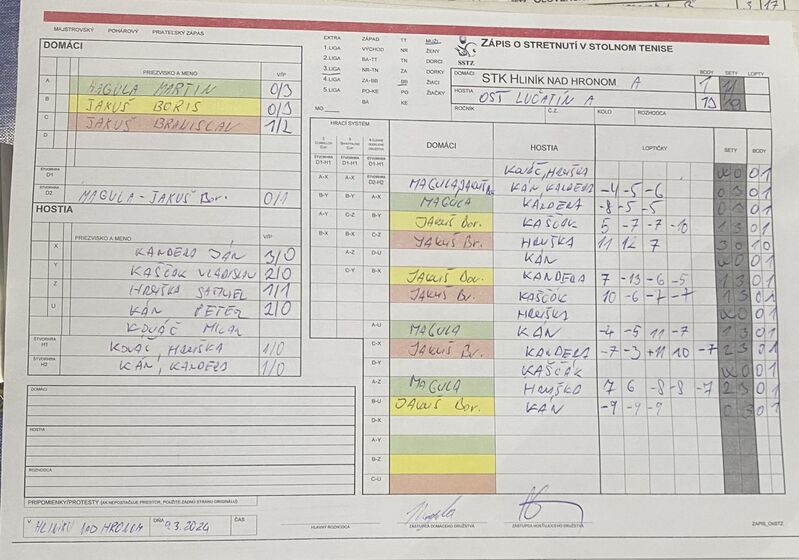 MAJSTROVSKÝ POHÁROVÝ PRIATEĽSKÝ ZÁPAS
DOMÁCI
PRIEZVISKO A MENO V/P
A MAGULA MARTIN 0/3
B JAKUŠ BORIS 0/3
C JAKUŠ BRANISLAV 1/2
D
ŠTVORHRA D1
ŠTVORHRA D2 MAGULA - JAKUŠ Bor. 0/1
HOSTIA
PRIEZVISKO A MENO V/P
X KANDERA JÁN 3/0
Y KAŠČÁK VLADISLAV 2/0
Z HRUŠKA SAMUEL 1/1
U KÁN PETER 2/0
KOVÁČ MILAN
ŠTVORHRA H1 KOVÁČ, HRUŠKA 1/0
ŠTVORHRA H2 KÁN, KANDERA 1/0
DOMÁCI
HOSTIA
ROZHODCA
PRIPOMIENKY/PROTESTY (AK NEPOSTAČUJE PRIESTOR, POUŽITE ZADNÚ STRANU ORIGINÁLU)
V HLINIKU NAD HRONOM DŇA 9.3.2024 ČAS
EXTRA ZÁPAD TT MUŽI
1.LIGA VÝCHOD NR ŽENY
2.LIGA BA-TT TN DORCI
3.LIGA NR-TN ZA DORKY
4.LIGA ZA-BB BB ŽIACI
5.LIGA PO-KE PO ŽIAČKY
MO BA KE
SSTZ
ZÁPIS O STRETNUTÍ V STOLNOM TENISE
DOMÁCI STK HLINÍK NAD HRONOM A
HOSTIA OST LUČATÍN A
BODY SETY LOPTY
1 11
13
ROČNÍK Č.Z. KOLO ROZHODCA
HRACÍ SYSTÉM
DOMÁCI HOSTIA LOPTIČKY SETY BODY
ŠTVORHRA D1-H1 ŠTVORHRA D1-H1 ŠTVORHRA D1-H1 KOVÁČ, HRUŠKA WO 0 1
A-X A-X ŠTVORHRA D2-H2 MAGULA, JAKUŠ Bor. KÁN, KANDERA -4 -5 -6 0 3 0 1
B-Y B-Y A-X MAGULA KANDERA -8 -5 -5 0 3 0 1
A-Y C-Z B-Y JAKUŠ Bor. KAŠČÁK 5 -7 -7 -10 1 3 0 1
B-X B-X C-Z JAKUŠ Br. HRUŠKA 11 12 7 3 0 1 0
A-Z D-U KÁN WO 0 1
C-Y B-X JAKUŠ Bor. KANDERA 7 -13 -6 -5 1 3 0 1
JAKUŠ Br. KAŠČÁK 10 -6 -7 -7 1 3 0 1
HRUŠKA WO 0 1
A-U MAGULA KÁN -4 -5 11 -7 1 3 0 1
C-X JAKUŠ Br. KANDERA -7 -3 +11 10 -7 2 3 0 1
D-Y KAŠČÁK WO 0 1
A-Z MAGULA HRUŠKA 7 6 -8 -8 -7 2 3 0 1
B-U JAKUŠ Bor. KÁN -9 -9 -9 0 3 0 1
D-X
A-Y
B-Z
C-U
HLAVNÝ ROZHODCA ZÁSTUPCA DOMÁCEHO DRUŽSTVA ZÁSTUPCA HOSŤUJÚCEHO DRUŽSTVA ZÁPIS_OsSTZ